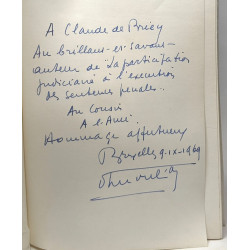 A Claude de Briey
Au brillant et savant
auteur de "La participation
judiciaire à l'exécution
des sentences pénales".
Au Cousin
A l'Ami.
Hommage affectueux
Bruxelles 9-IX-1969